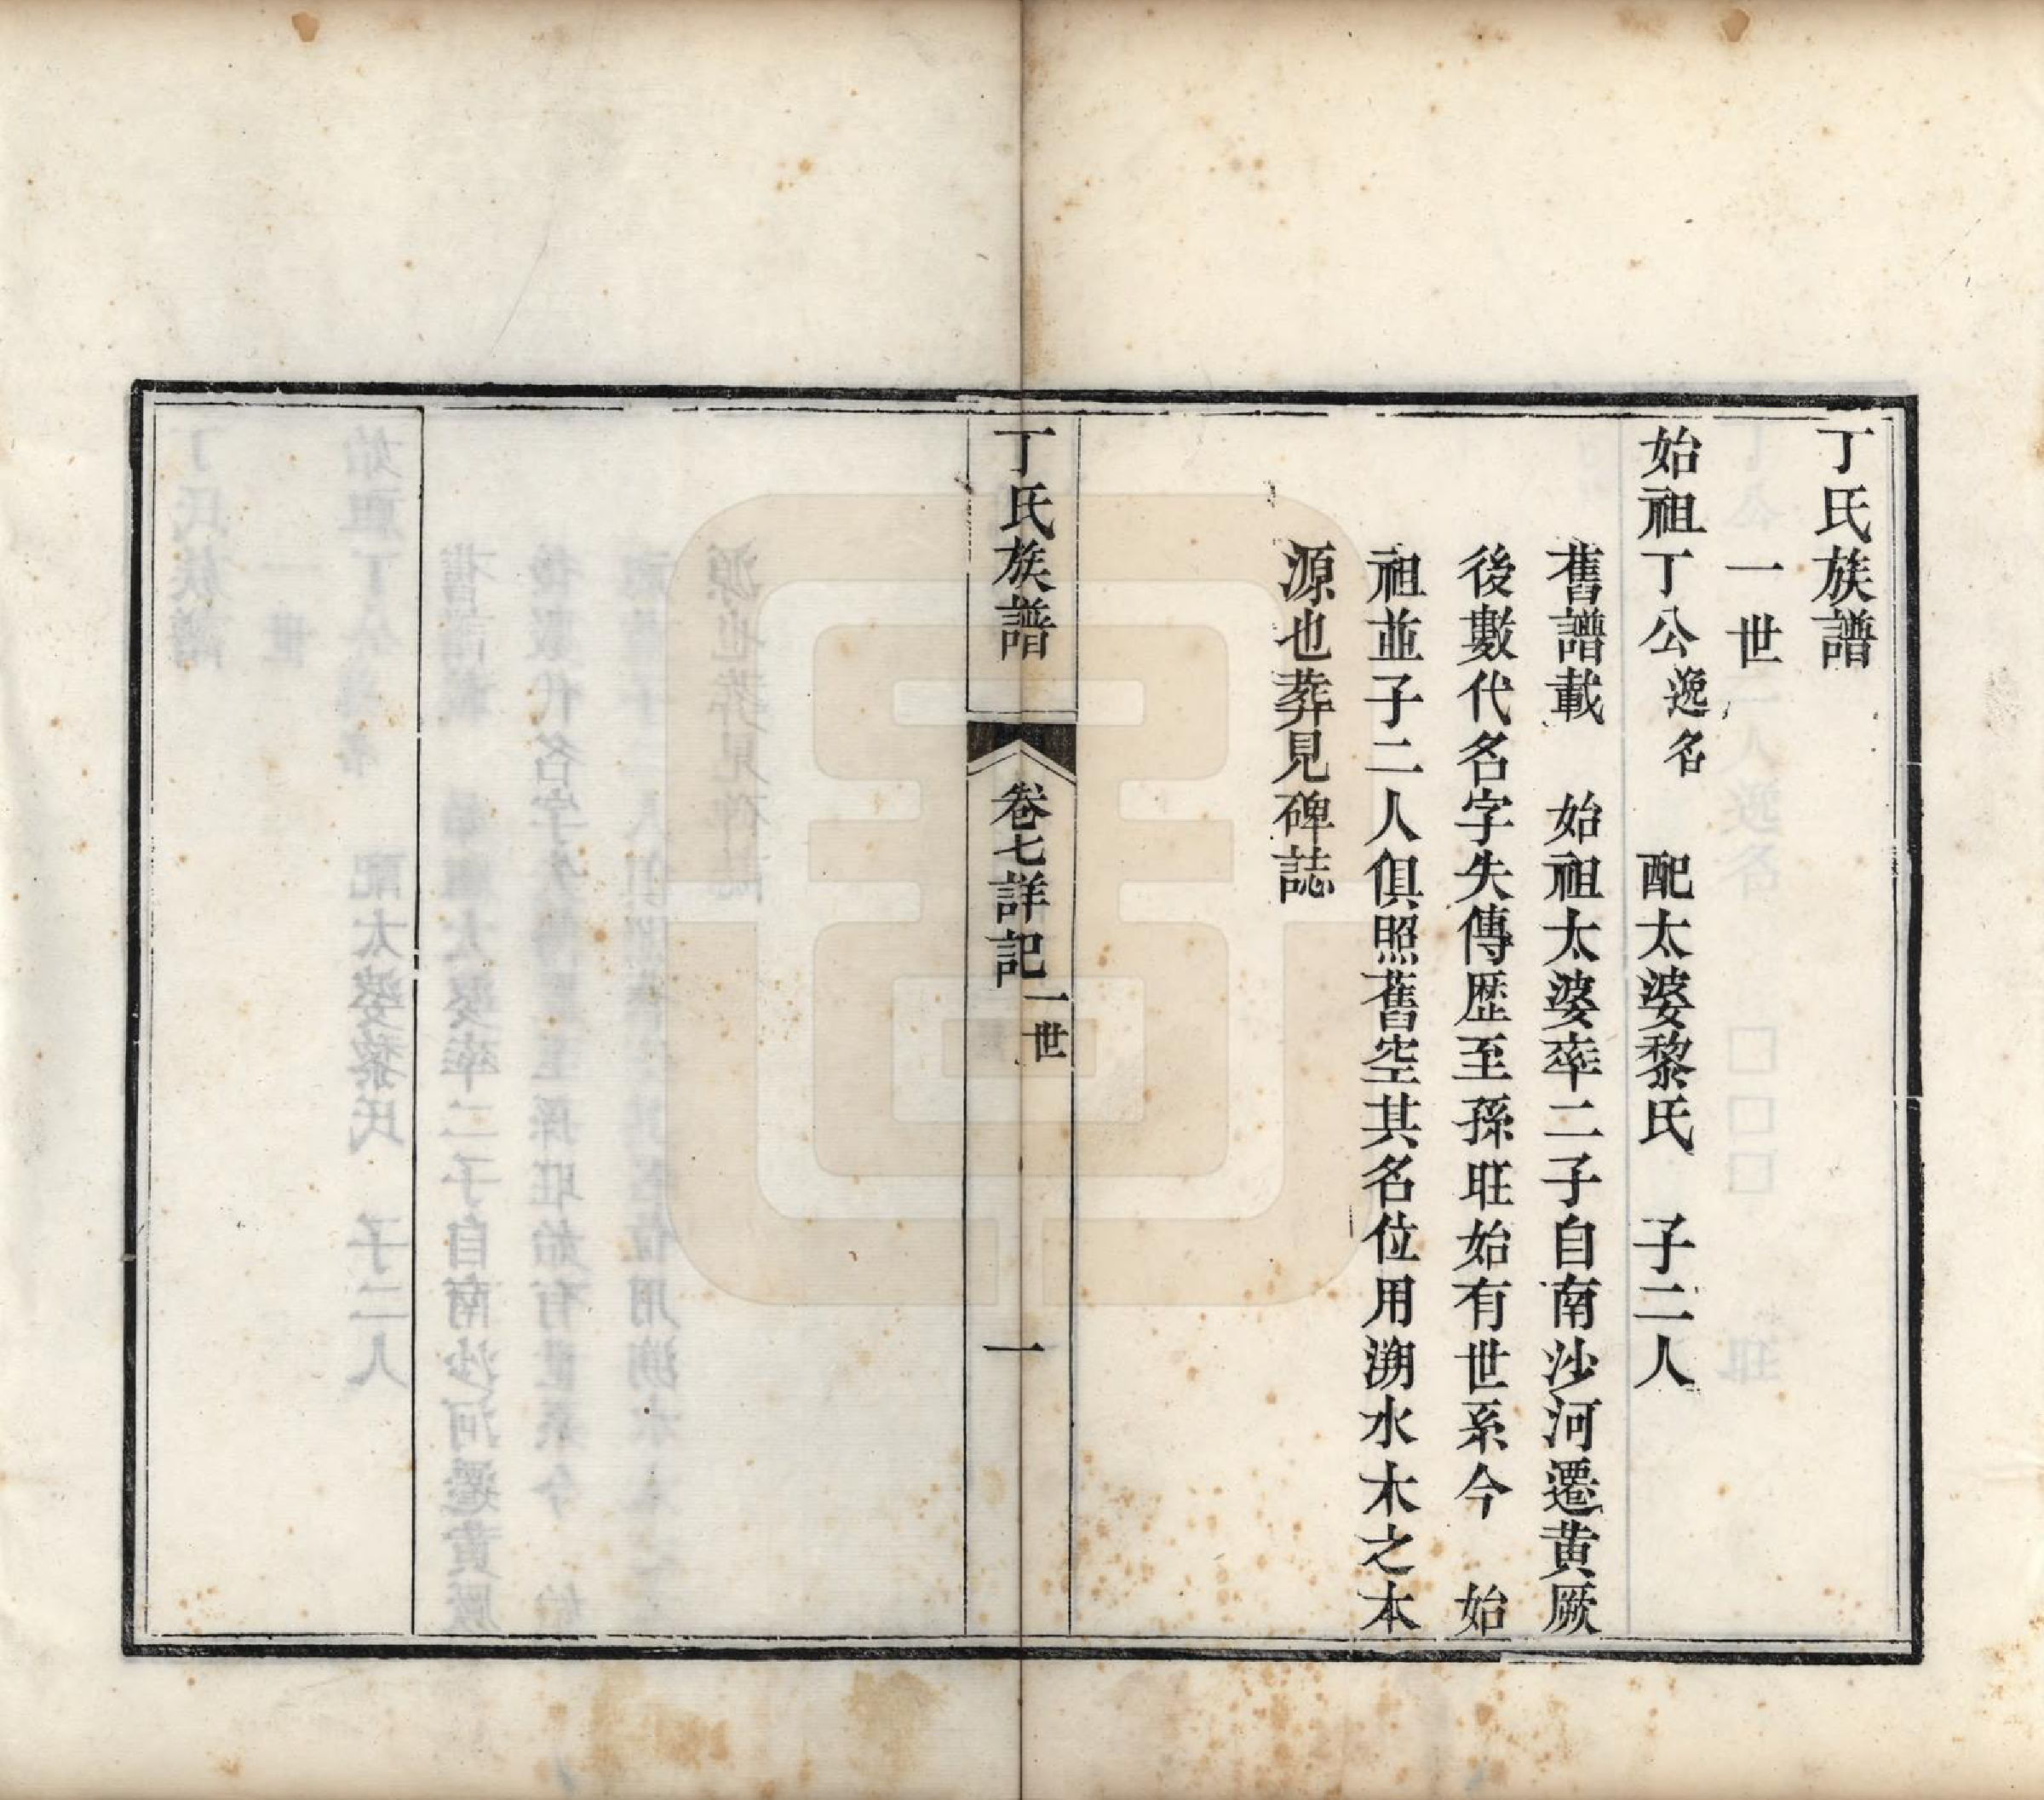 丁氏族譜
一世
始祖丁公逸名　配太婆黎氏　子二人
舊譜載　始祖太婆率二子自南沙河遷黄厥
後數代名字失傳歷至孫旺始有世系今　始
祖並子二人俱照舊空其名位用溯水木之本
源也葬見碑誌
丁氏族譜　卷七詳記　一世　一